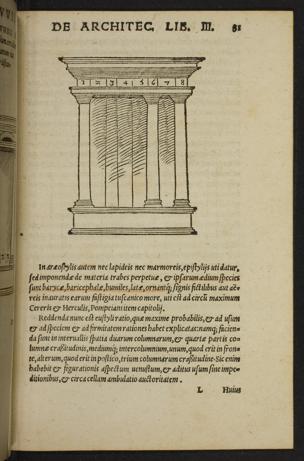 DE ARCHITEC. LIB. III. 81
1 2 3 4 5 6 7 8
In aræostylis autem nec lapideis nec marmoreis, epistylijs uti datur,
sed imponendæ de materia trabes perpetuæ, & ipsarum ædium species
sunt barycæ, baricephalæ, humiles, latæ, ornantq; signis fictilibus aut æ-
reis inauratis earum fastigia tuscanico more, uti est ad circũ maximum
Cereris & Herculis, Pompeiani item capitolij.
Reddenda nunc est eustyli ratio, quæ maxime probabilis, & ad usum
& ad speciem & ad firmitatem rationes habet explicatas: namq; facien-
da sunt in interuallis spatia duarum columnarum, & quartæ partis co-
lumnæ crassitudinis, mediumq; intercolumnium, unum, quod erit in fron-
te, alterum, quod erit in postico, trium columnarum crassitudine. Sic enim
habebit & figurationis aspectum uenustum, & aditus usum sine impe-
ditionibus, & circa cellam ambulatio auctoritatem.
L Huius